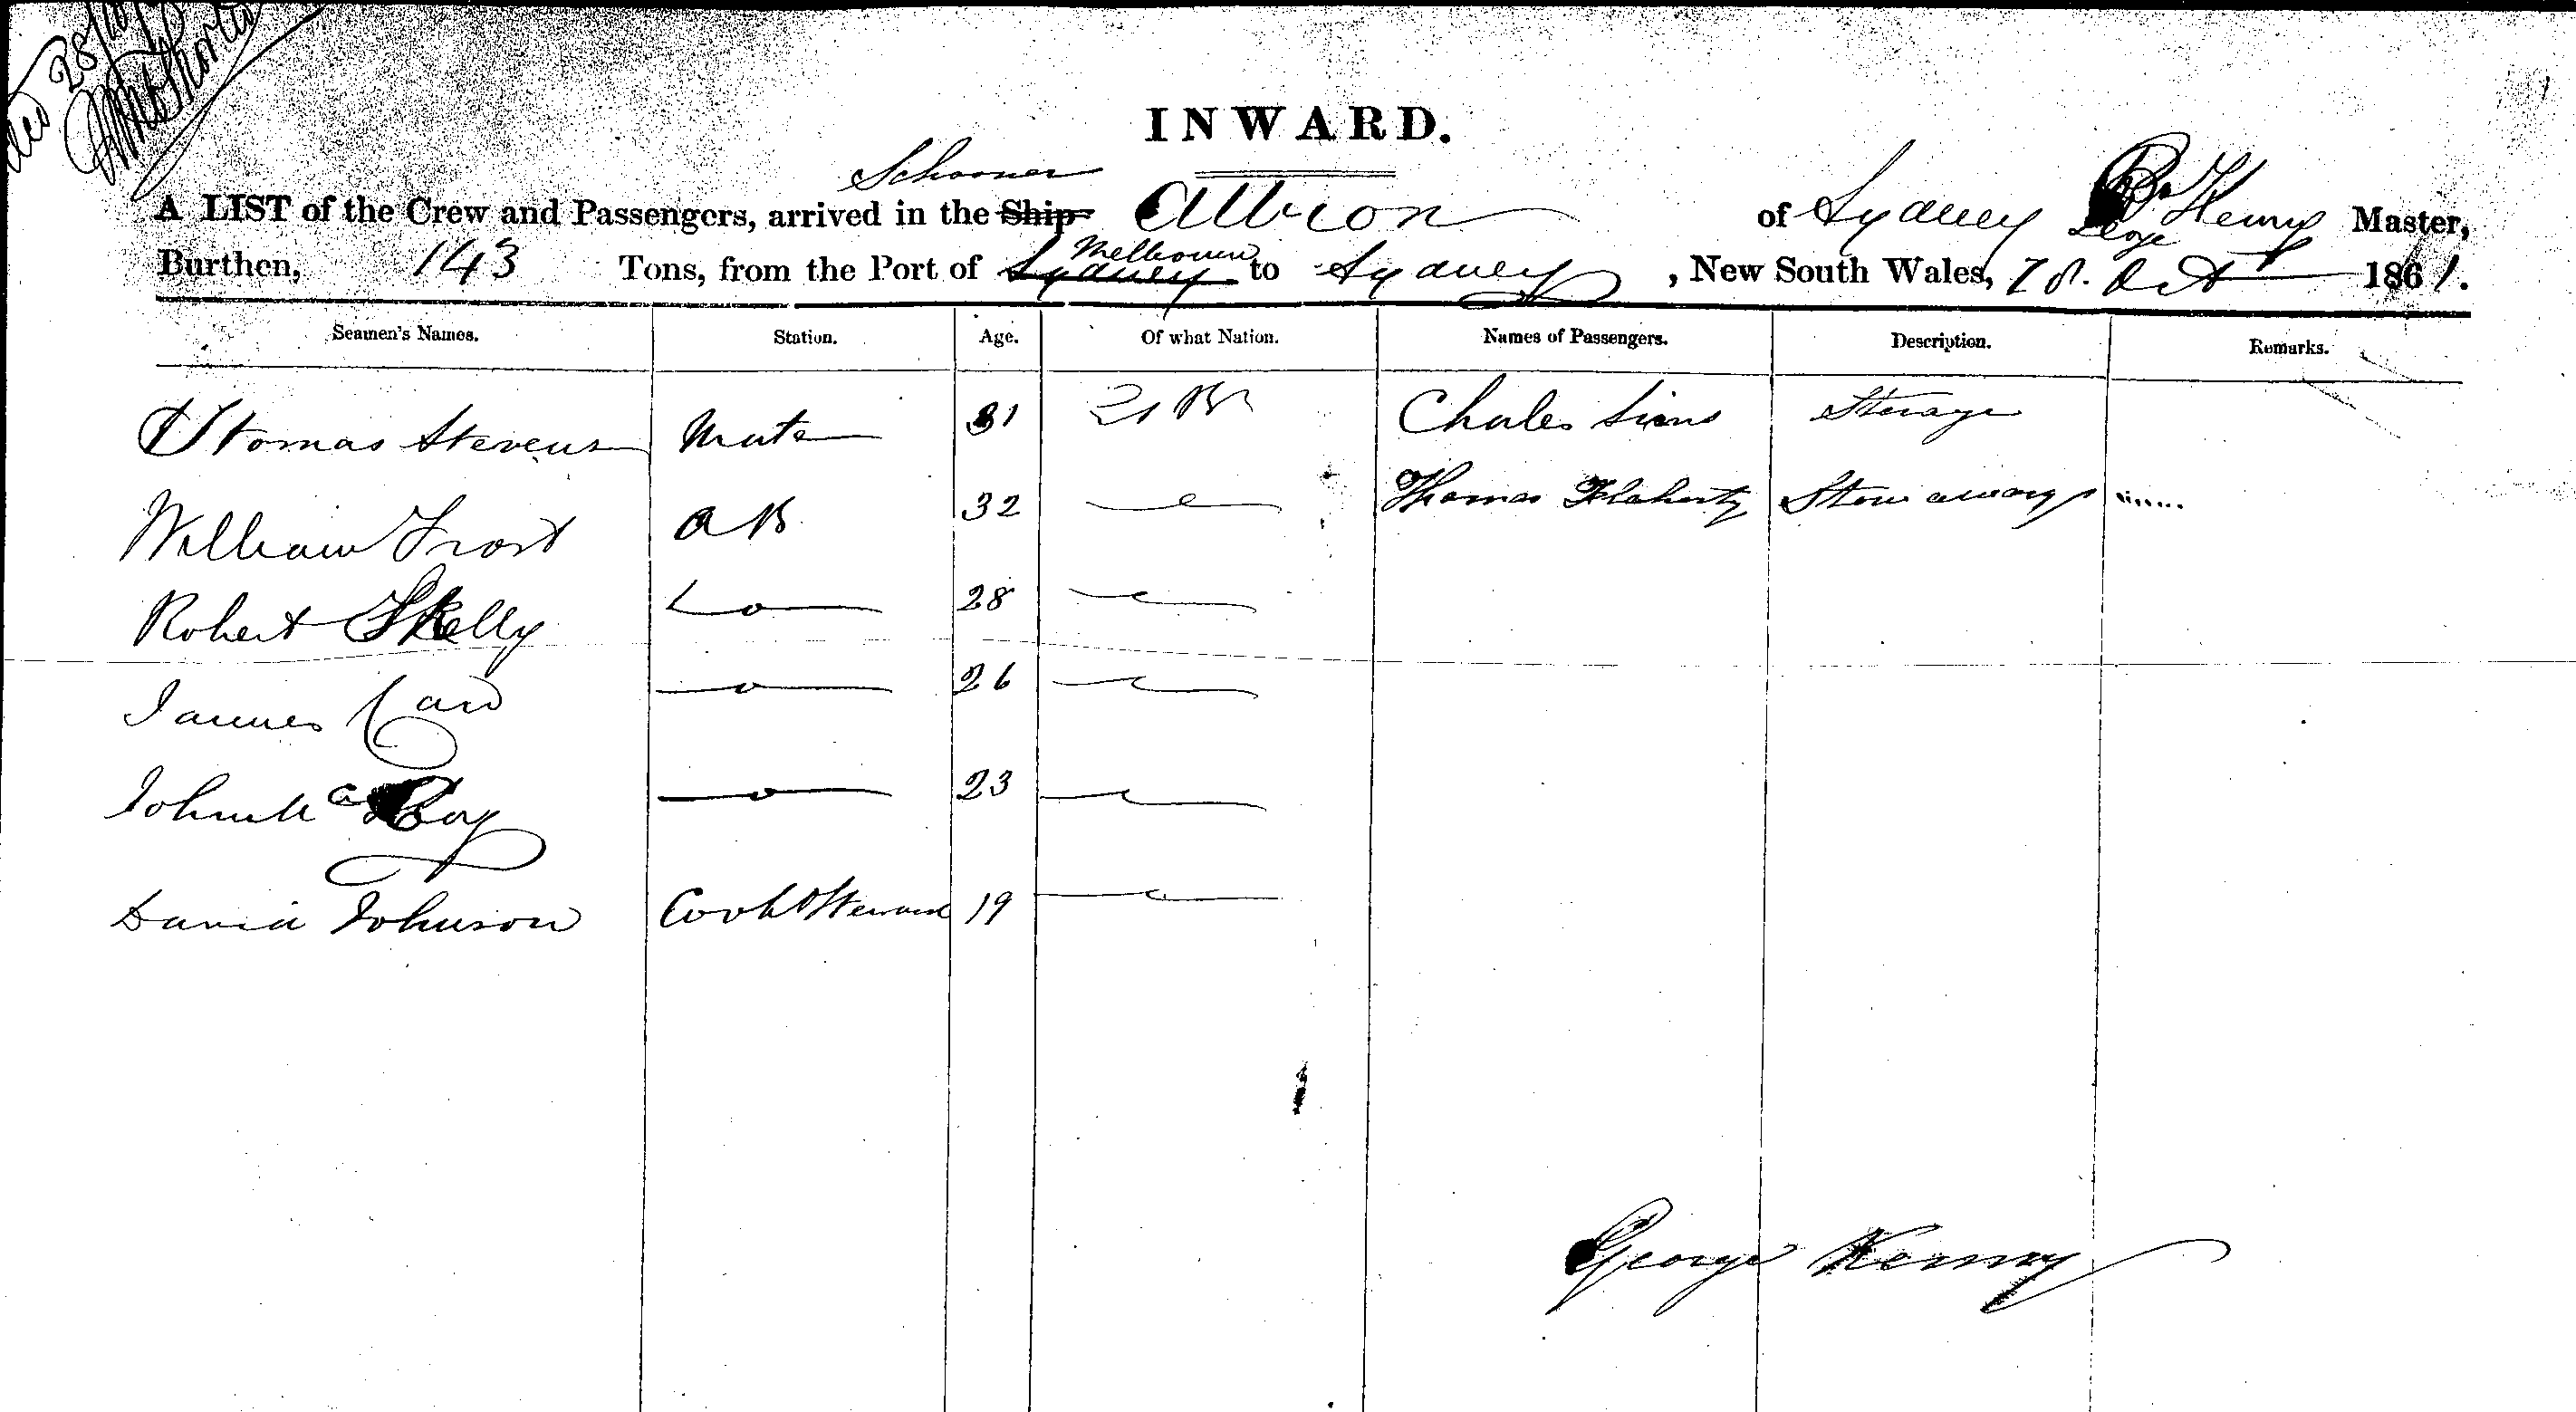 28/10/
INWARD.
Schooner
A LIST of the Crew and Passengers, arrived in the Ship Albion of Sydney Henry Master,
George
Melbourne
Burthen, 143 Tons, from the Port of Sydney to Sydney, New South Wales, 28. Oct 1861.
Seamen's Names. Station. Age. Of what Nation. Names of Passengers. Description. Remarks.
Thomas Stevens Mate 31 Charles Sims Sterage
William Frost AB 32 Thomas Flaherty Stow away
Robert Skelly 28
James 26
John 23
David Johnson Cook & Steward 19
George Kenny